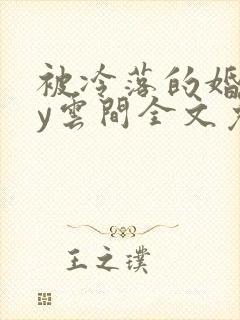 被冷落的婚
y雲間全文
王之璞